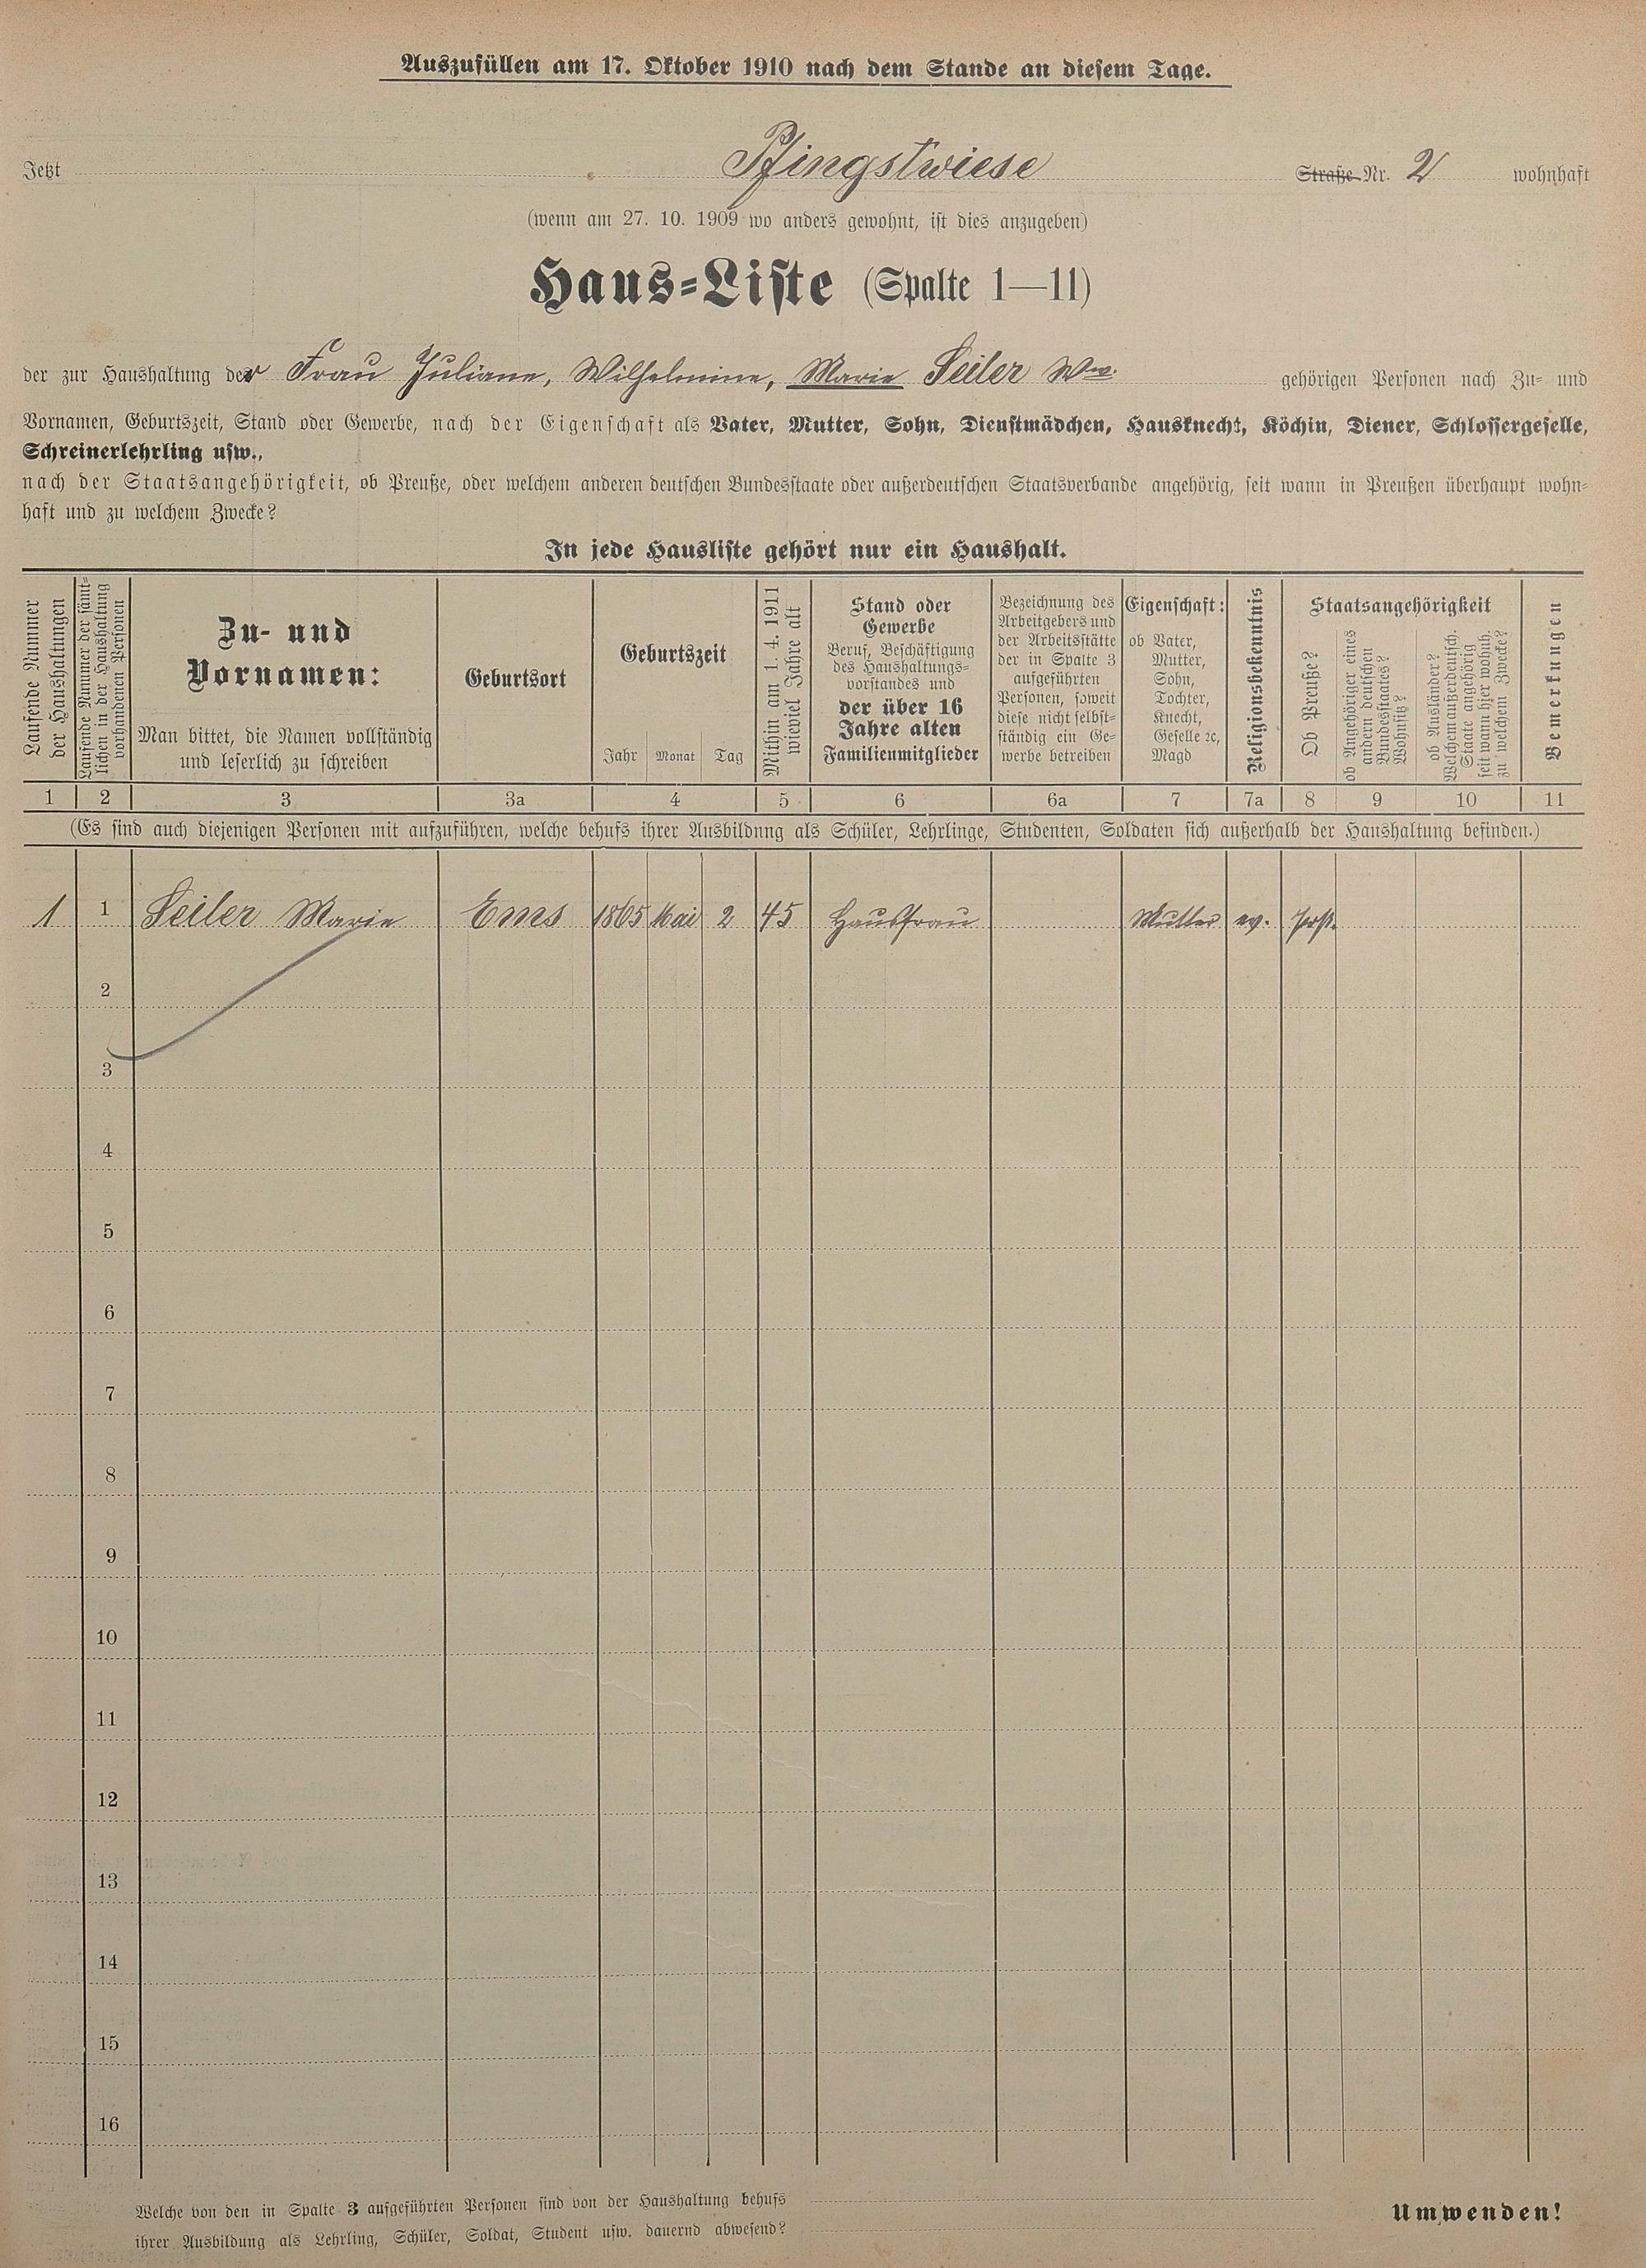 Auszufüllen am 17. Oktober 1910 nach dem Stande an diesem Tage.
Jetzt Pfingstwiese Straße Nr. 2 wohnhaft
(wenn am 27. 10. 1909 wo anders gewohnt, ist dies anzugeben)
Haus-Liste (Spalte 1—11)
der zur Haushaltung der Frau Juliane, Wilhelmine, Marie Seiler Ww. gehörigen Personen nach Zu- und
Vornamen, Geburtszeit, Stand oder Gewerbe, nach der Eigenschaft als Vater, Mutter, Sohn, Dienstmädchen, Hausknecht, Köchin, Diener, Schlossergeselle,
Schreinerlehrling usw.,
nach der Staatsangehörigkeit, ob Preuße, oder welchem anderen deutschen Bundesstaate oder außerdeutschen Staatsverbande angehörig, seit wann in Preußen überhaupt wohn-
haft und zu welchem Zwecke?
In jede Hausliste gehört nur ein Haushalt.
Laufende Nummer
der Haushaltungen
Laufende Nummer der sämt-
lichen in der Haushaltung
vorhandenen Personen
Zu- und
Vornamen:
Man bittet, die Namen vollständig
und leserlich zu schreiben
Geburtsort
Geburtszeit
Jahr Monat Tag
Mithin am 1. 4. 1911
wieviel Jahre alt
Stand oder
Gewerbe
Beruf, Beschäftigung
des Haushaltungs-
vorstandes und
der über 16
Jahre alten
Familienmitglieder
Bezeichnung des
Arbeitgebers und
der Arbeitsstätte
der in Spalte 3
aufgeführten
Personen, soweit
diese nicht selbst-
ständig ein Ge-
werbe betreiben
Eigenschaft:
ob Vater,
Mutter,
Sohn,
Tochter,
Knecht,
Geselle ꝛc,
Magd
Religionsbekenntnis
Staatsangehörigkeit
Ob Preuße?
ob Angehöriger eines
andern deutschen
Bundesstaates?
Wohnsitz?
ob Ausländer?
Welchem außerdeutsch.
Staate angehörig
seit wann hier wohnh.
zu welchem Zwecke?
Bemerkungen
1 2 3 3a 4 5 6 6a 7 7a 8 9 10 11
(Es sind auch diejenigen Personen mit aufzuführen, welche behufs ihrer Ausbildung als Schüler, Lehrlinge, Studenten, Soldaten sich außerhalb der Haushaltung befinden.)
1 1 Seiler Marie Ems 1865 Mai 2 45 Hausfrau Mutter ev.
2
3
4
5
6
7
8
9
10
11
12
13
14
15
16
Welche von den in Spalte 3 aufgeführten Personen sind von der Haushaltung behufs
ihrer Ausbildung als Lehrling, Schüler, Soldat, Student usw. dauernd abwesend?
Umwenden!